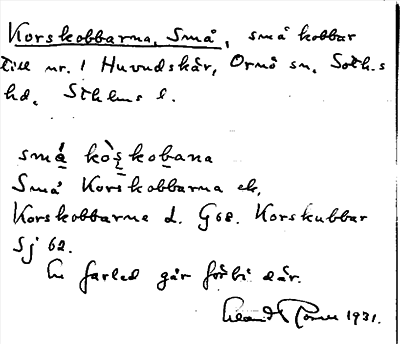 Korskobbarna, Små, små kobbar
till nr. 1 Huvudskär, Ornö sn, Soth.s
hd, Sthlms l.
små kòṣkobana
Små Korskobbarna ek,
Korskobbarna d. G68. Korskubbar
Sj 62.
En farled går förbi där.
1931.